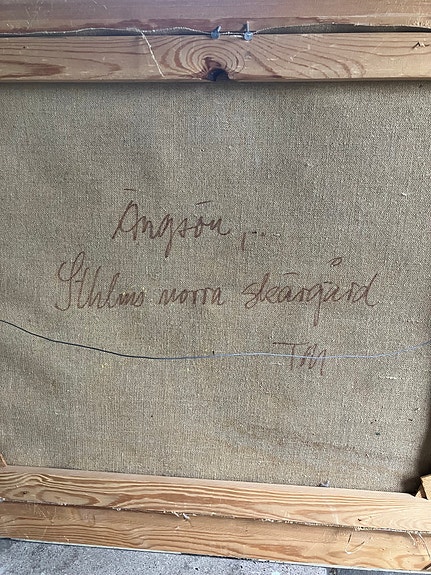 Ängsön,
Sthlms norra skärgård
TM